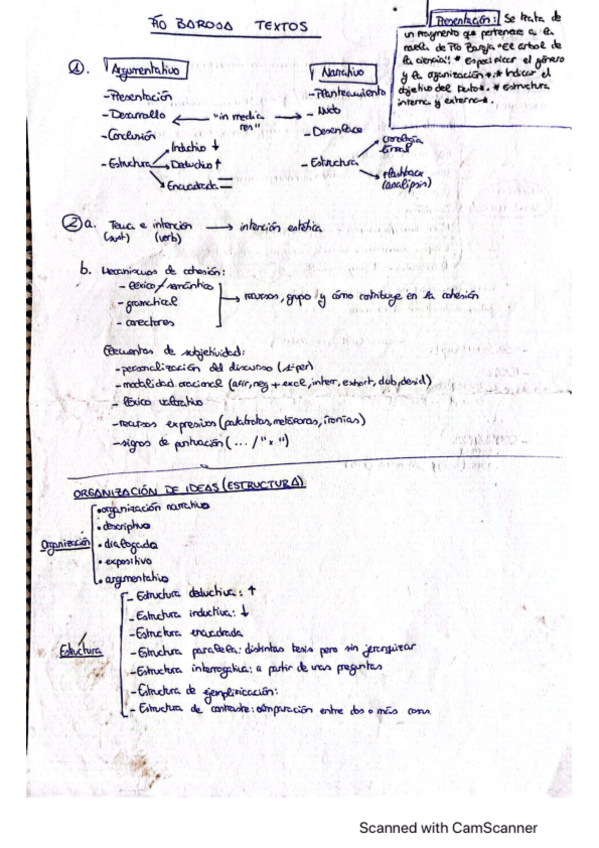 PÍO BAROJA TEXTOS
Presentación: Se trata de
un fragmento que pertenece a la
novela de Pío Baroja "El árbol de
la ciencia". * Especificar el género
y la organización *. * Indicar el
objetivo del texto *. * Estructura
interna y externa *.
1. Argumentativo
- Presentación
- Desarrollo
- Conclusión
- Estructura
Inductivo ↓
Deductivo ↑
Encuadrada =
"in media
res"
Narrativo
- Planteamiento
- Nudo
- Desenlace
- Estructura
cronología
lineal
flashback
(analipsis)
2 a. Tema e intención → intención estética
(sust) (verb)
b. Mecanismos de cohesión:
- léxico/semántico
- gramatical
- conectores
→ recursos, grupo y cómo contribuye en la cohesión
Elementos de subjetividad:
- personalización del discurso (1ªper)
- modalidad oracional (afir, neg + excl, interr, exhort, dub, desid)
- léxico valorativo
- recursos expresivos (palabrotas, metáforas, ironías)
- signos de puntuación (... / "x")
ORGANIZACIÓN DE IDEAS (ESTRUCTURA)
Organización
• organización narrativa
• descriptiva
• dialogada
• expositivo
• argumentativo
Estructura
- Estructura deductiva: ↑
- Estructura inductiva: ↓
- Estructura encuadrada
- Estructura paralela: distintas tesis pero sin jerarquizar
- Estructura interrogativa: a partir de unas preguntas
- Estructura de ejemplificación:
- Estructura de contraste: comparación entre dos o más cosas
Scanned with CamScanner